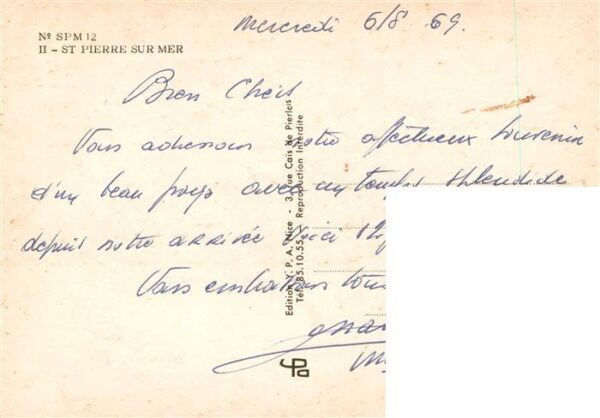 Nº SPM 12
II - ST PIERRE SUR MER
Mercredi 6/8 69.
Bien Chers
Vous adressons notre affectueux souvenir
d'un beau pays avec un temps splendide
depuis notre arrivée
Vous embrassons tous
Edition Y. P. A. Nice - 3, Rue Cais de Pierlas
Tél. 85.10.55 Reproduction Interdite